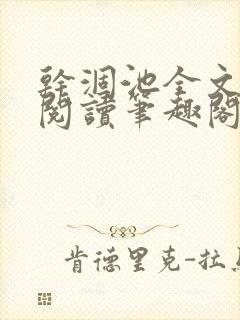 幹涸池全文
閱讀筆趣閣
肯德里克-拉